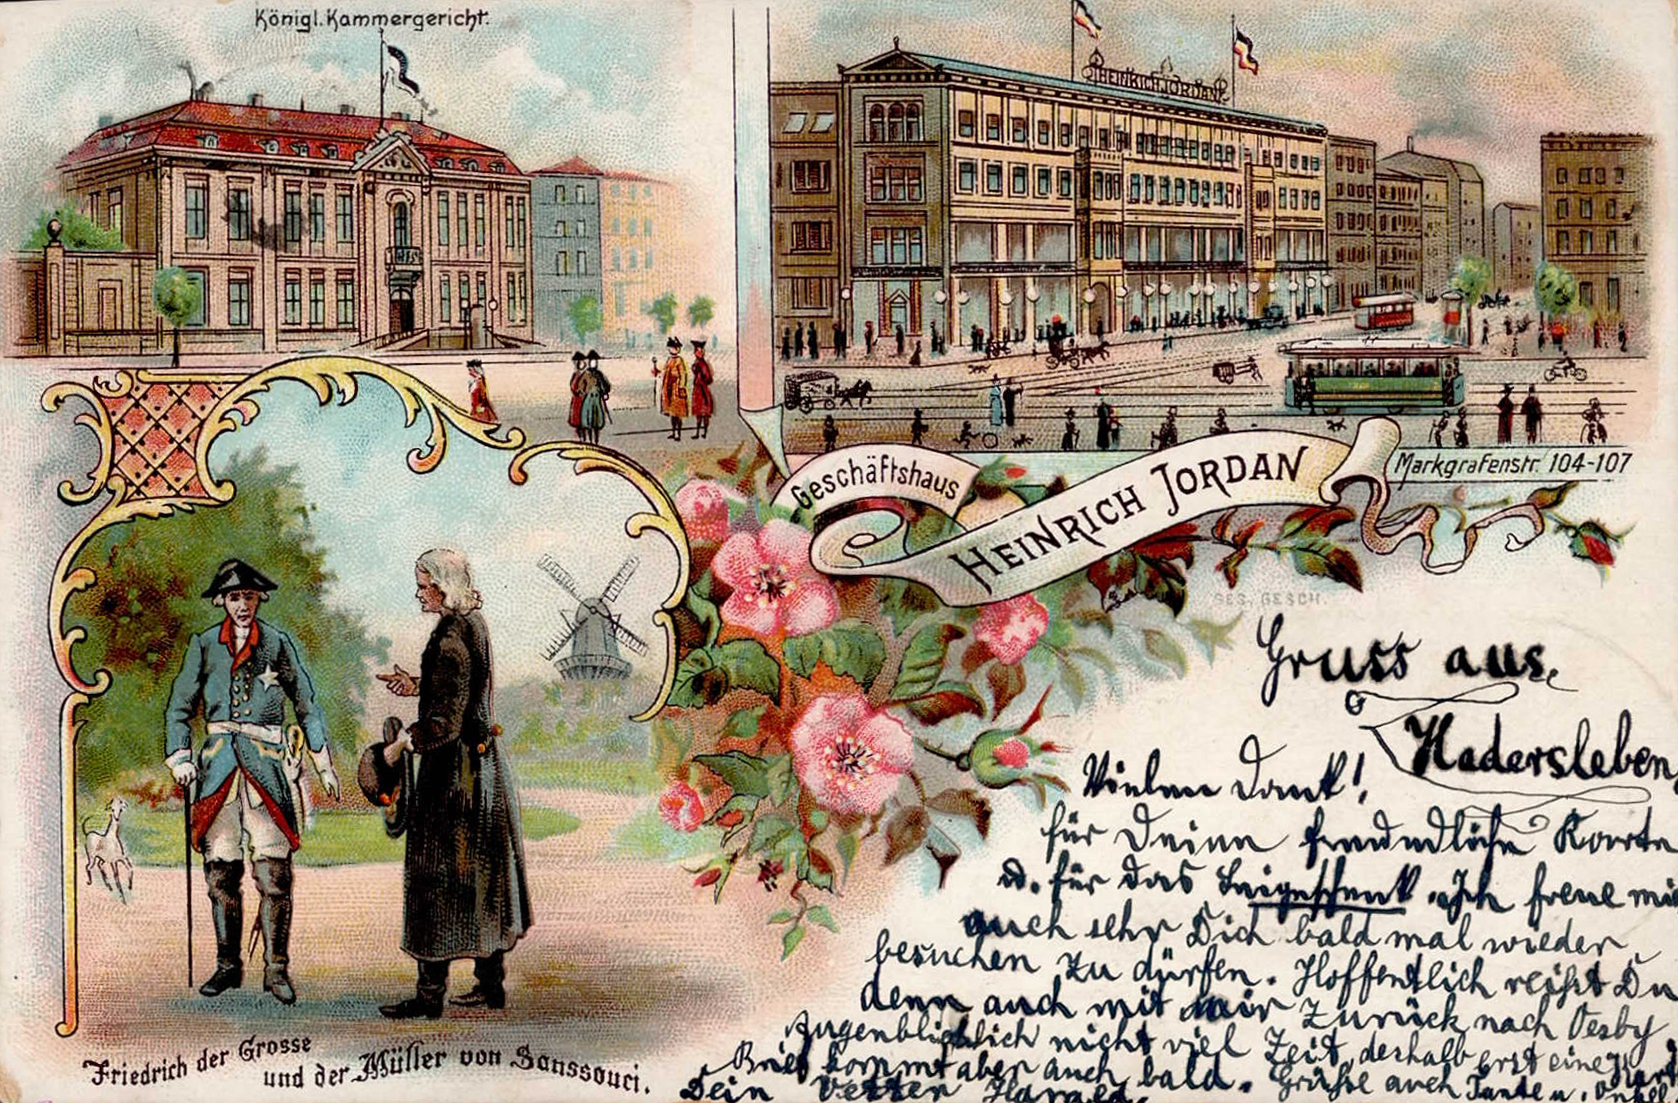 Königl. Kammergericht.
HEINRICH JORDAN
Geschäftshaus
HEINRICH JORDAN
Markgrafenstr. 104-107
GES. GESCH.
Gruss aus
Hadersleben
Vielen Dank!
für Deine freundliche Karte
u. für das Geschenk. Ich freue mi
auch sehr Dich bald mal wieder
besuchen zu dürfen. Hoffentlich reist Du
denn auch mit mir zurück nach Oesby
Augenblicklich nicht viel Zeit, deshalb erst eine Kart
Brief kommt aber auch bald. Grüsse auch Tante u. Onkel
Dein Vetter Harald.
Friedrich der Grosse
und der Müller von Sanssouci.